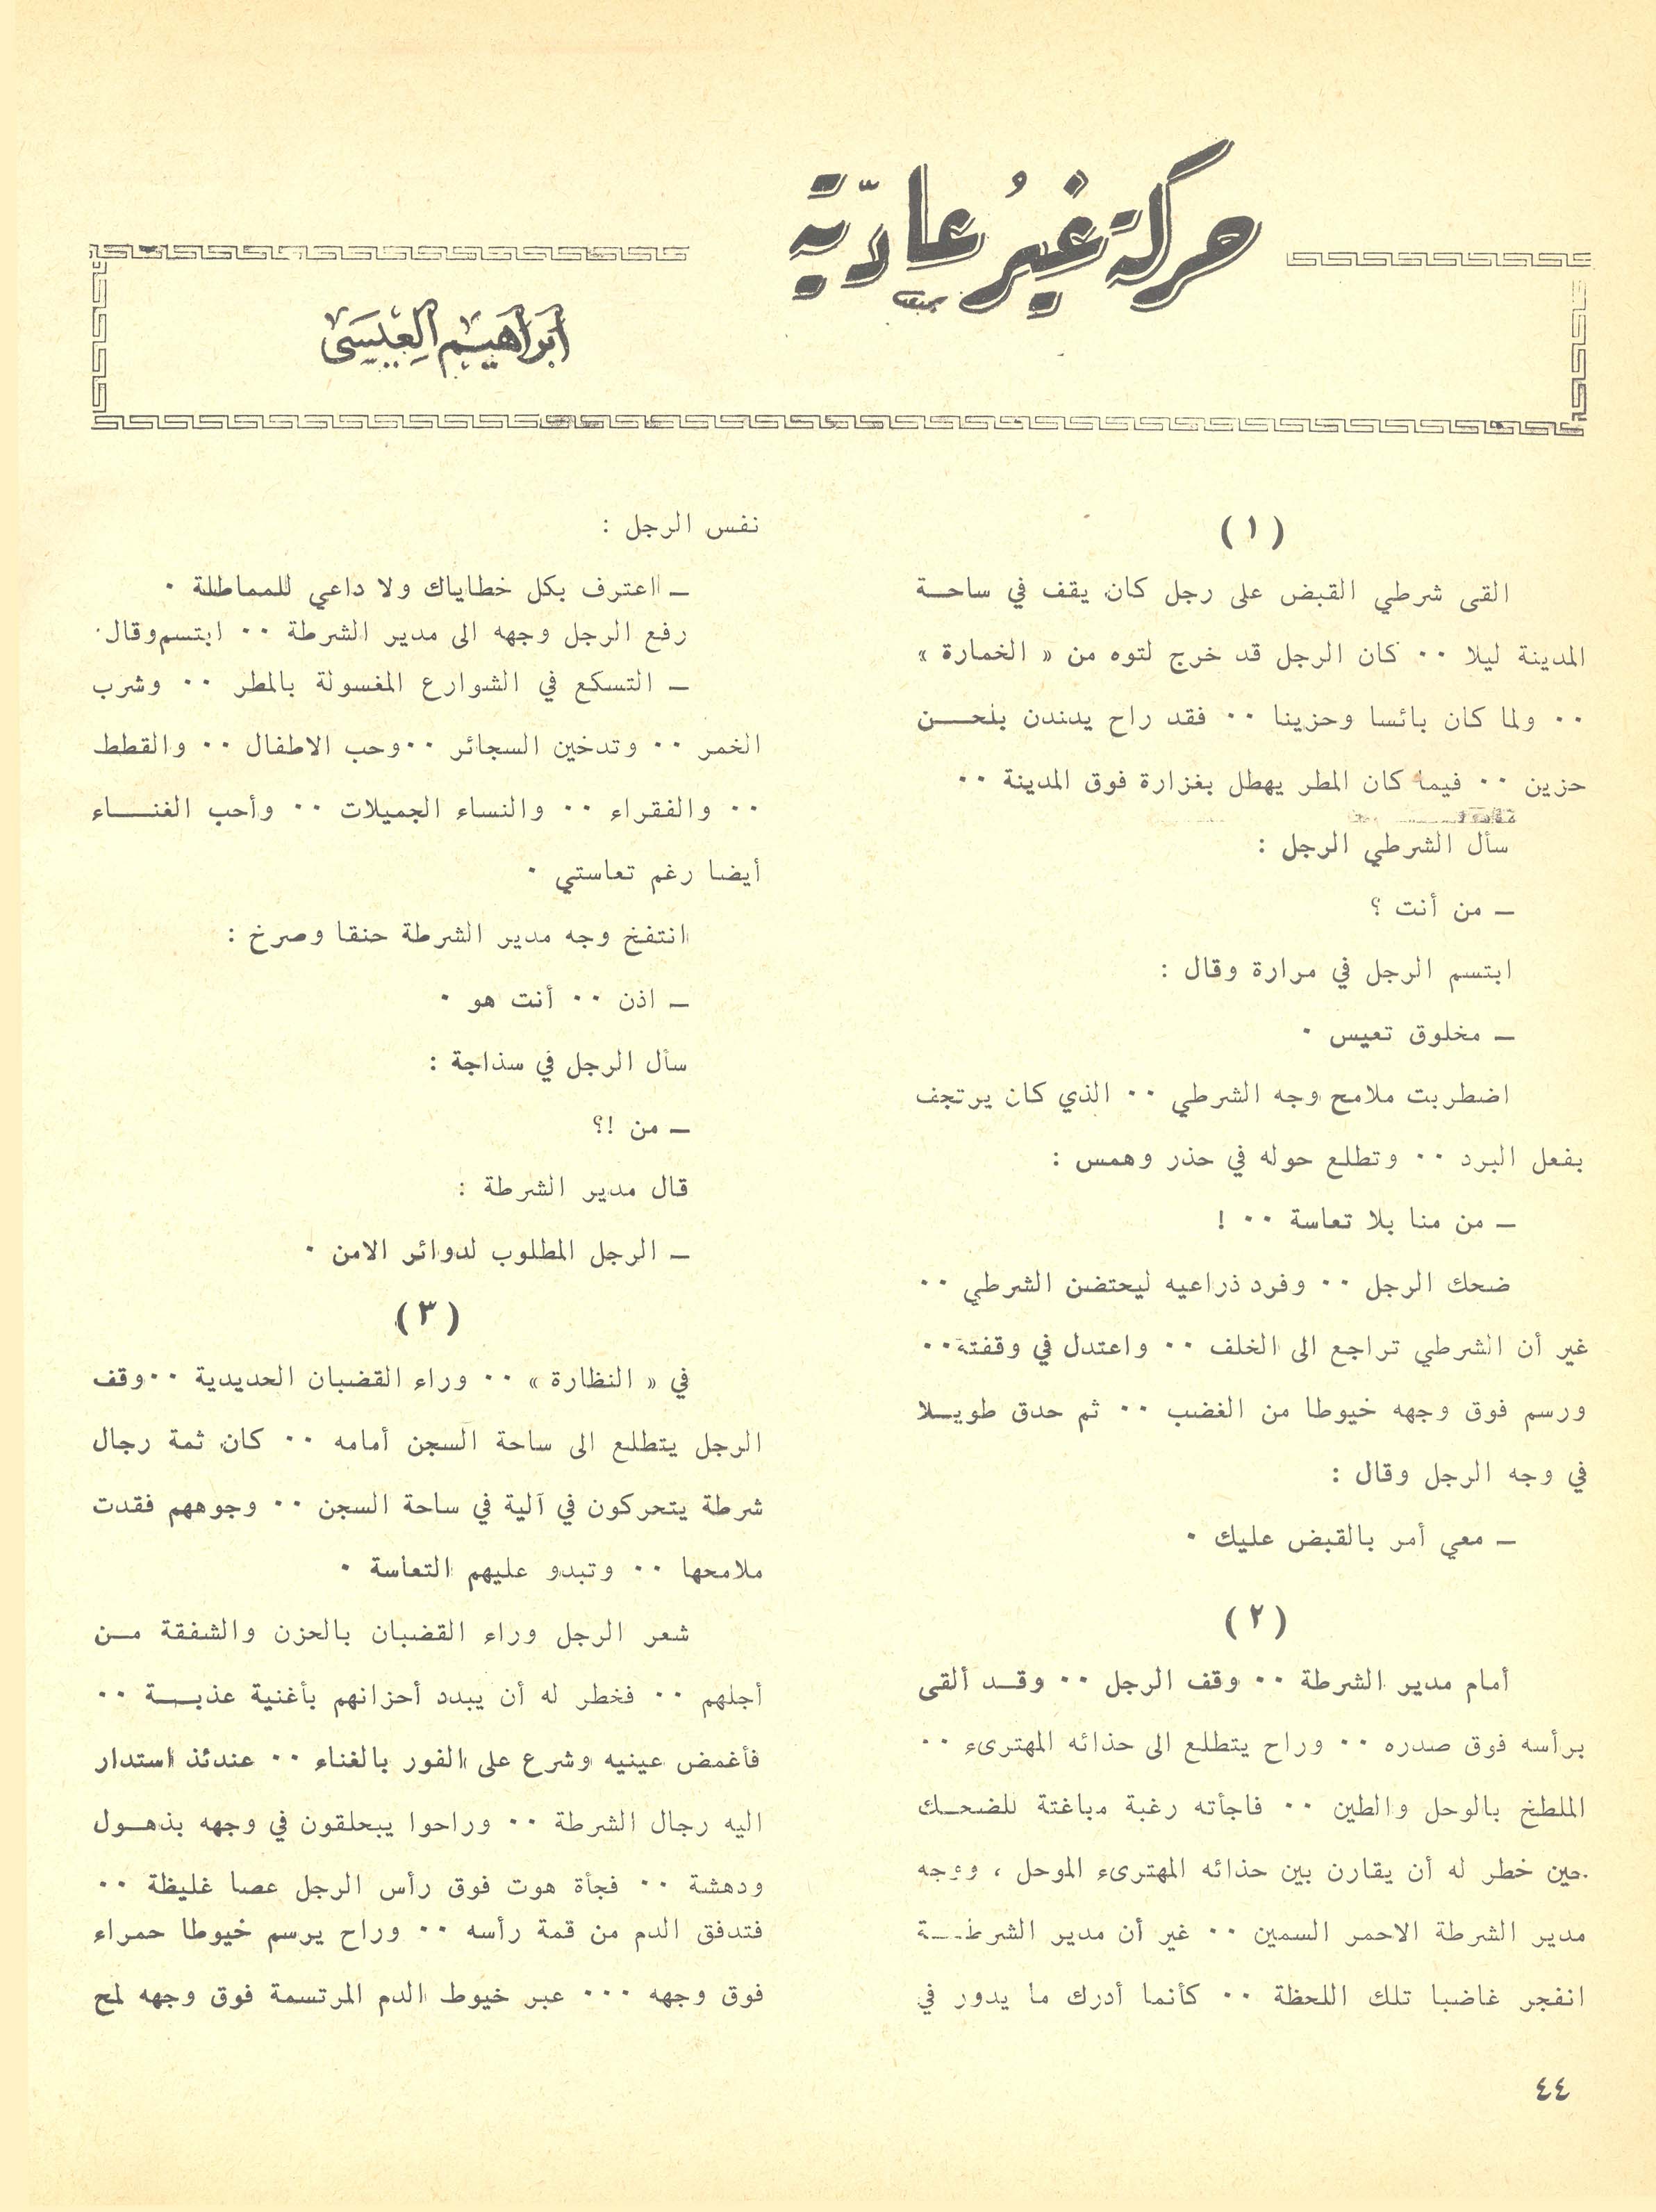 حركة غيرُ عاديّة
ابراهيم العبسي
( ١ )
القى شرطي القبض على رجل كان يقف في ساحة
المدينة ليلا ٠٠ كان الرجل قد خرج لتوه من « الخمارة »
٠٠ ولما كان بائسا وحزينا ٠٠ فقد راح يدندن بلحن
حزين ٠٠ فيما كان المطر يهطل بغزارة فوق المدينة ٠٠
سأل الشرطي الرجل :
ـ من أنت ؟
ابتسم الرجل في مرارة وقال :
ـ مخلوق تعيس ٠
اضطربت ملامح وجه الشرطي ٠٠ الذي كان يرتجف
بفعل البرد ٠٠ وتطلع حوله في حذر وهمس :
ـ من منا بلا تعاسة ٠٠ !
ضحك الرجل ٠٠ وفرد ذراعيه ليحتضن الشرطي ٠٠
غير أن الشرطي تراجع الى الخلف ٠٠ واعتدل في وقفته٠٠
ورسم فوق وجهه خيوطا من الغضب ٠٠ ثم حدق طويلا
في وجه الرجل وقال :
ـ معي أمر بالقبض عليك ٠
( ٢ )
أمام مدير الشرطة ٠٠ وقف الرجل ٠٠ وقد ألقى
برأسه فوق صدره ٠٠ وراح يتطلع الى حذائه المهترىء ٠٠
الملطخ بالوحل والطين ٠٠ فاجأته رغبة مباغتة للضحك
حين خطر له أن يقارن بين حذائه المهترىء الموحل ، ووجه
مدير الشرطة الاحمر السمين ٠٠ غير أن مدير الشرطة
انفجر غاضبا تلك اللحظة ٠٠ كأنما أدرك ما يدور في
نفس الرجل :
ـ اعترف بكل خطاياك ولا داعي للمماطلة ٠
رفع الرجل وجهه الى مدير الشرطة ٠٠ ابتسم وقال٠
ـ التسكع في الشوارع المغسولة بالمطر ٠٠ وشرب
الخمر ٠٠ وتدخين السجائر ٠٠وحب الاطفال ٠٠ والقطط
٠٠ والفقراء ٠٠ والنساء الجميلات ٠٠ وأحب الغناء
أيضا رغم تعاستي ٠
انتفخ وجه مدير الشرطة حنقا وصرخ :
ـ اذن ٠٠ أنت هو ٠
سأل الرجل في سذاجة :
ـ من !؟
قال مدير الشرطة :
ـ الرجل المطلوب لدوائر الامن ٠
( ٣ )
في « النظارة » ٠٠ وراء القضبان الحديدية ٠٠وقف
الرجل يتطلع الى ساحة السجن أمامه ٠٠ كان ثمة رجال
شرطة يتحركون في آلية في ساحة السجن ٠٠ وجوههم فقدت
ملامحها ٠٠ وتبدو عليهم التعاسة ٠
شعر الرجل وراء القضبان بالحزن والشفقة من
أجلهم ٠٠ فخطر له أن يبدد أحزانهم بأغنية عذبة ٠٠
فأغمض عينيه وشرع على الفور بالغناء ٠٠ عندئذ استدار
اليه رجال الشرطة ٠٠ وراحوا يبحلقون في وجهه بذهول
ودهشة ٠٠ فجأة هوت فوق رأس الرجل عصا غليظة ٠٠
فتدفق الدم من قمة رأسه ٠٠ وراح يرسم خيوطا حمراء
فوق وجهه ٠٠٠ عبر خيوط الدم المرتسمة فوق وجهه لمح
٤٤